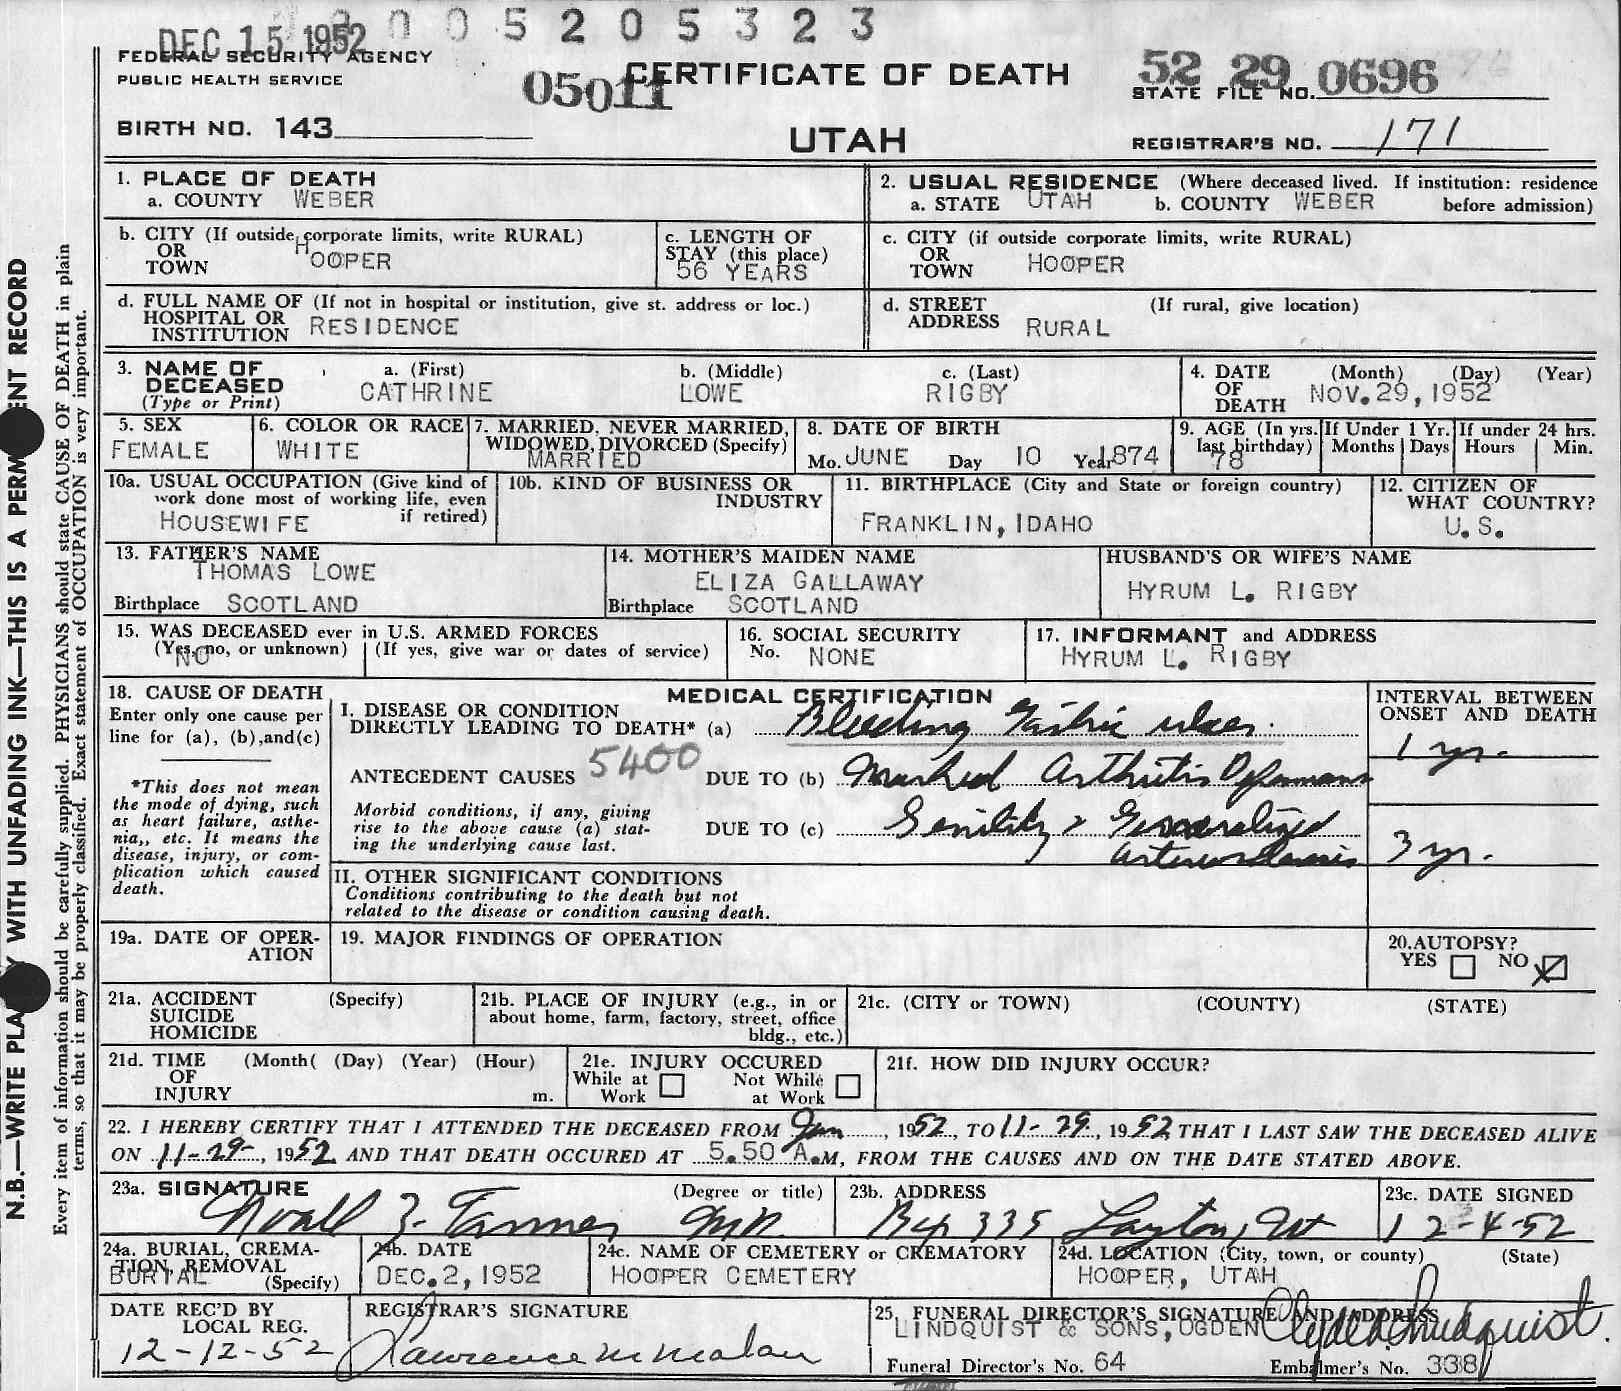 DEC 15 1952
0 0 5 2 0 5 3 2 3
FEDERAL SECURITY AGENCY
PUBLIC HEALTH SERVICE
05011
CERTIFICATE OF DEATH
52 29 0696
STATE FILE NO.
BIRTH NO. 143
UTAH
REGISTRAR'S NO. 171
1. PLACE OF DEATH
a. COUNTY WEBER
2. USUAL RESIDENCE (Where deceased lived. If institution: residence
a. STATE UTAH b. COUNTY WEBER before admission)
b. CITY (If outside corporate limits, write RURAL)
OR
TOWN HOOPER
c. LENGTH OF
STAY (this place)
56 YEARS
c. CITY (if outside corporate limits, write RURAL)
OR
TOWN HOOPER
d. FULL NAME OF (If not in hospital or institution, give st. address or loc.)
HOSPITAL OR
INSTITUTION RESIDENCE
d. STREET (If rural, give location)
ADDRESS RURAL
3. NAME OF a. (First) b. (Middle) c. (Last)
DECEASED CATHRINE LOWE RIGBY
(Type or Print)
4. DATE (Month) (Day) (Year)
OF NOV. 29, 1952
DEATH
5. SEX
FEMALE
6. COLOR OR RACE
WHITE
7. MARRIED, NEVER MARRIED,
WIDOWED, DIVORCED (Specify)
MARRIED
8. DATE OF BIRTH
Mo. JUNE Day 10 Year 1874
9. AGE (In yrs.
last birthday)
78
If Under 1 Yr.
Months Days
If under 24 hrs.
Hours Min.
10a. USUAL OCCUPATION (Give kind of
work done most of working life, even
HOUSEWIFE if retired)
10b. KIND OF BUSINESS OR
INDUSTRY
11. BIRTHPLACE (City and State or foreign country)
FRANKLIN, IDAHO
12. CITIZEN OF
WHAT COUNTRY?
U. S.
13. FATHER'S NAME
THOMAS LOWE
Birthplace SCOTLAND
14. MOTHER'S MAIDEN NAME
ELIZA GALLAWAY
Birthplace SCOTLAND
HUSBAND'S OR WIFE'S NAME
HYRUM L. RIGBY
15. WAS DECEASED ever in U.S. ARMED FORCES
(Yes, no, or unknown) (If yes, give war or dates of service)
NO
16. SOCIAL SECURITY
No. NONE
17. INFORMANT and ADDRESS
HYRUM L. RIGBY
18. CAUSE OF DEATH
Enter only one cause per
line for (a), (b),and(c)
*This does not mean
the mode of dying, such
as heart failure, asthe-
nia,, etc. It means the
disease, injury, or com-
plication which caused
death.
MEDICAL CERTIFICATION
I. DISEASE OR CONDITION
DIRECTLY LEADING TO DEATH* (a) Bleeding Gastric ulcer.
5400
ANTECEDENT CAUSES DUE TO (b) Marked Arthritis Deformans
Morbid conditions, if any, giving
rise to the above cause (a) stat-
ing the underlying cause last.
DUE TO (c) Senility & Generalized
arteriosclerosis
II. OTHER SIGNIFICANT CONDITIONS
Conditions contributing to the death but not
related to the disease or condition causing death.
INTERVAL BETWEEN
ONSET AND DEATH
1 yr.
3 yr.
19a. DATE OF OPER-
ATION
19. MAJOR FINDINGS OF OPERATION
20.AUTOPSY?
YES NO
21a. ACCIDENT (Specify)
SUICIDE
HOMICIDE
21b. PLACE OF INJURY (e.g., in or
about home, farm, factory, street, office
bldg., etc.)
21c. (CITY or TOWN) (COUNTY) (STATE)
21d. TIME (Month( (Day) (Year) (Hour)
OF
INJURY m.
21e. INJURY OCCURED
While at Not While
Work at Work
21f. HOW DID INJURY OCCUR?
22. I HEREBY CERTIFY THAT I ATTENDED THE DECEASED FROM Jan, 1952, TO 11-29, 1952, THAT I LAST SAW THE DECEASED ALIVE
ON 11-29-, 1952 AND THAT DEATH OCCURED AT 5.50 A.M, FROM THE CAUSES AND ON THE DATE STATED ABOVE.
23a. SIGNATURE (Degree or title)
Noall Z. Tanner M.D.
23b. ADDRESS
Box 335 Layton, Ut
23c. DATE SIGNED
12-4-52
24a. BURIAL, CREMA-
TION, REMOVAL
BURIAL (Specify)
24b. DATE
DEC. 2, 1952
24c. NAME OF CEMETERY or CREMATORY
HOOPER CEMETERY
24d. LOCATION (City, town, or county) (State)
HOOPER, UTAH
DATE REC'D BY
LOCAL REG.
12-12-52
REGISTRAR'S SIGNATURE
Lawrence M Malan
25. FUNERAL DIRECTOR'S SIGNATURE AND ADDRESS
LINDQUIST & SONS, OGDEN Clyde Lindquist.
Funeral Director's No. 64 Embalmer's No. 338
N.B.—WRITE PLA Y WITH UNFADING INK—THIS IS A PERM ENT RECORD
Every item of information should be carefully supplied. PHYSICIANS should state CAUSE OF DEATH in plain
terms, so that it may be properly classified. Exact statement of OCCUPATION is very important.